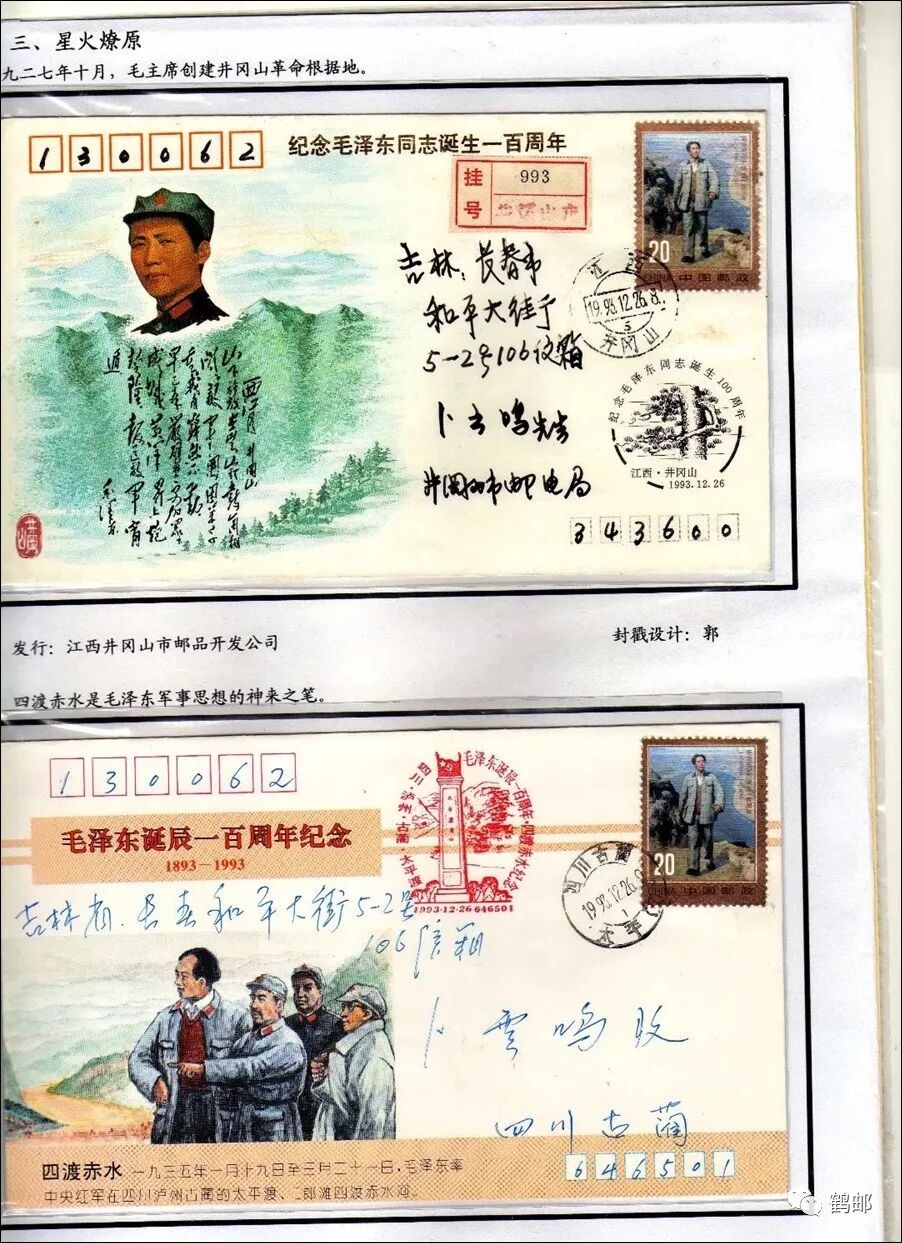 三、星火燎原
九二七年十月，毛主席创建井冈山革命根据地。
130062
纪念毛泽东同志诞生一百周年
挂号
993
20
CHINA 中国邮政
吉林：长春市
和平大街
5-2号106信箱
19 93.12.26.8
井冈山
纪念毛泽东同志诞生100周年
江西·井冈山
1993.12.26
卜云鸣先生
井冈山市邮电局
343600
西江月 井冈山
山下旌旗在望 山头鼓角相
闻 敌军围困万千
重 我自岿然不动
早已森严壁垒 更加众志
成城 黄洋界上炮
声隆 报道敌军宵
遁
毛泽东
井冈山
发行：江西井冈山市邮品开发公司
封戳设计：郭
四渡赤水是毛泽东军事思想的神来之笔。
130062
毛泽东诞辰一百周年纪念
1893—1993
毛泽东诞辰一百周年·四渡赤水纪念
1993·12·26 646501
20
CHINA 中国邮政
四川古蔺
19 93.12.26.9
太平
吉林省.长春和平大街5-2号
106信箱
卜雲鸣收
四川古蔺
646501
四渡赤水 一九三五年一月十九日至三月二十一日，毛泽东率
中央红军在四川泸州古蔺的太平渡、二郎滩四渡赤水河。
鹤邮